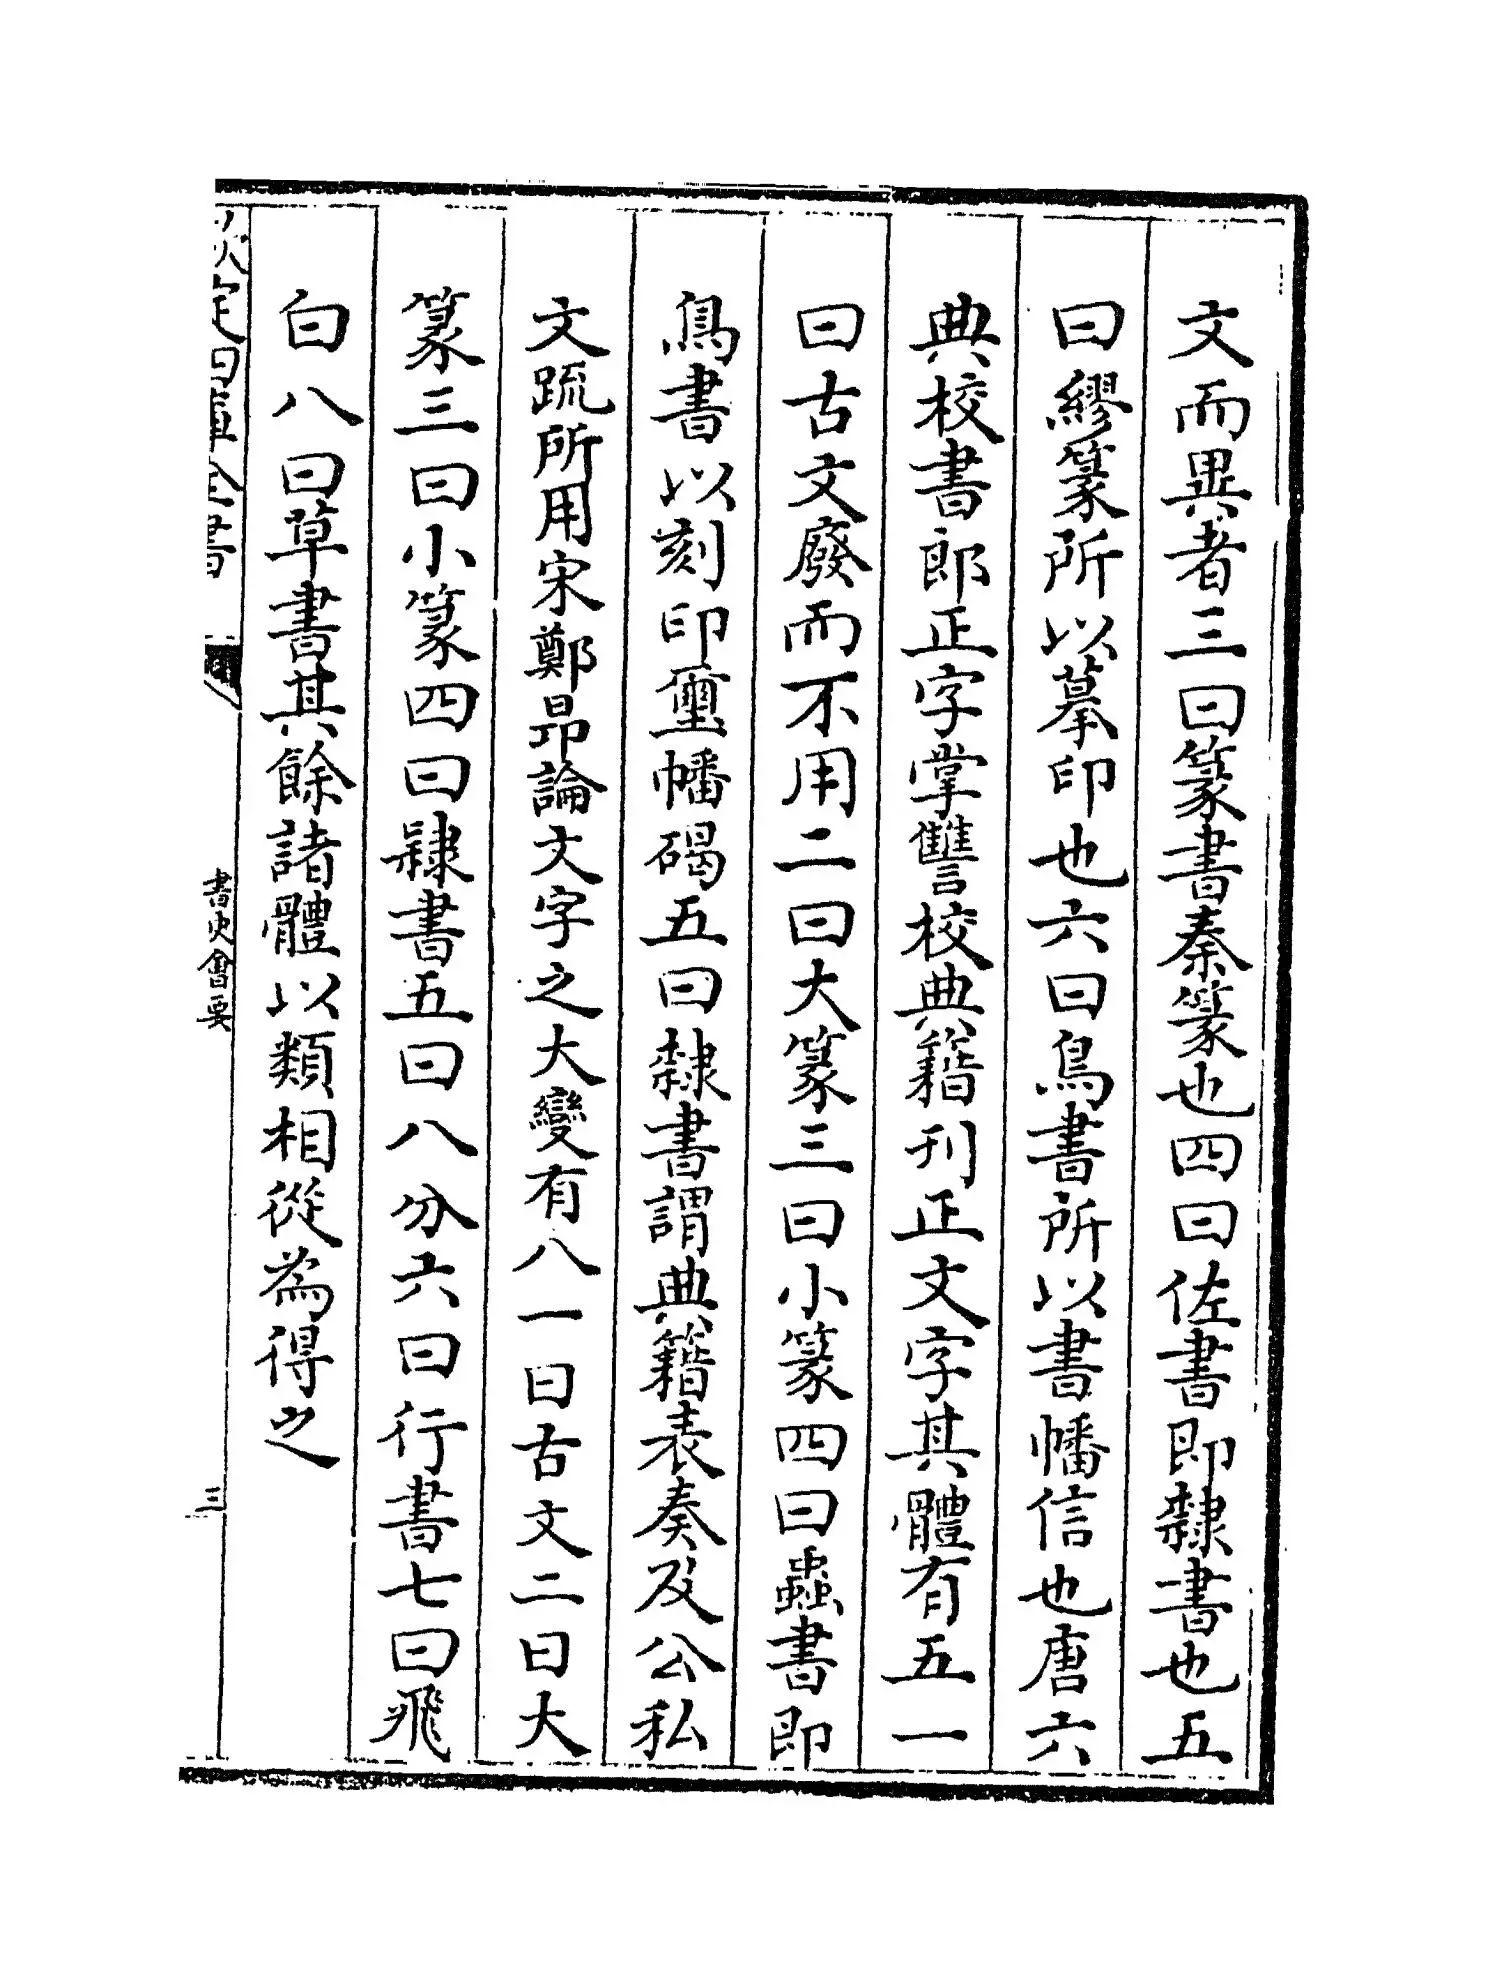 文而異者三曰篆書秦篆也四曰佐書即隸書也五
曰繆篆所以摹印也六曰鳥書所以書幡信也唐六
典校書郎正字掌讐校典籍刊正文字其體有五一
曰古文廢而不用二曰大篆三曰小篆四曰蟲書即
鳥書以刻印璽幡碣五曰隸書謂典籍表奏及公私
文疏所用宋鄭昂論文字之大變有八一曰古文二曰大
篆三曰小篆四曰隸書五曰八分六曰行書七曰飛
白八曰草書其餘諸體以類相從為得之
欽定四庫全書
書史會要
三